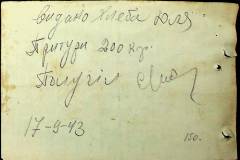 видано хлеба для
Притури 200 кгр.
Получил
17-9-43
150.